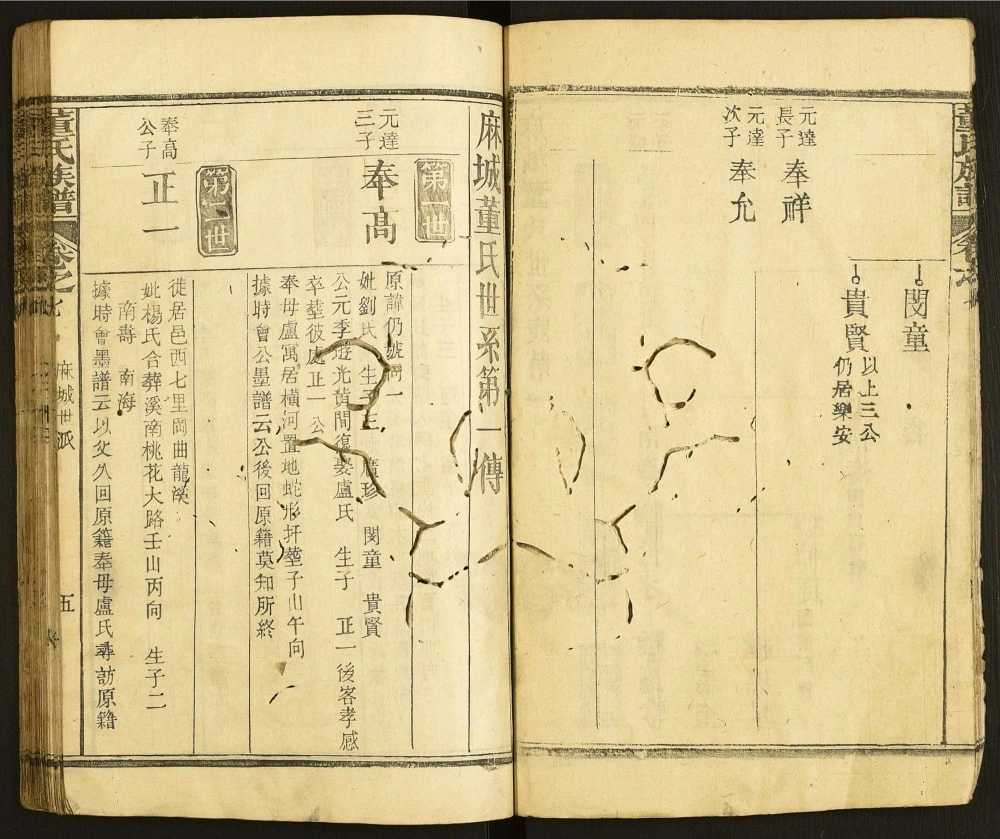 董氏族譜
閔童
貴賢
以上三公
仍居樂安
元達
長子
奉祥
元達
次子
奉允
麻城董氏世系第一傳
第一世
元達
三子
奉高
原諱仍號
妣劉氏 生子三 廣珍 閔童 貴賢
公元季遊光黃間復娶盧氏 生子 正一後客孝感
卒塟彼處正一公
奉母盧寓居橫河置地蛇形扦塟子山午向
據時會公墨譜云公後回原籍莫知所終
第二世
奉高
公子
正一
徙居邑西七里岡曲龍溪
妣楊氏合葬溪南桃花大路壬山丙向 生子二
南壽 南海
據時會墨譜云以父久回原籍奉母盧氏尋訪原籍
董氏族譜
卷之七
麻城世派
五